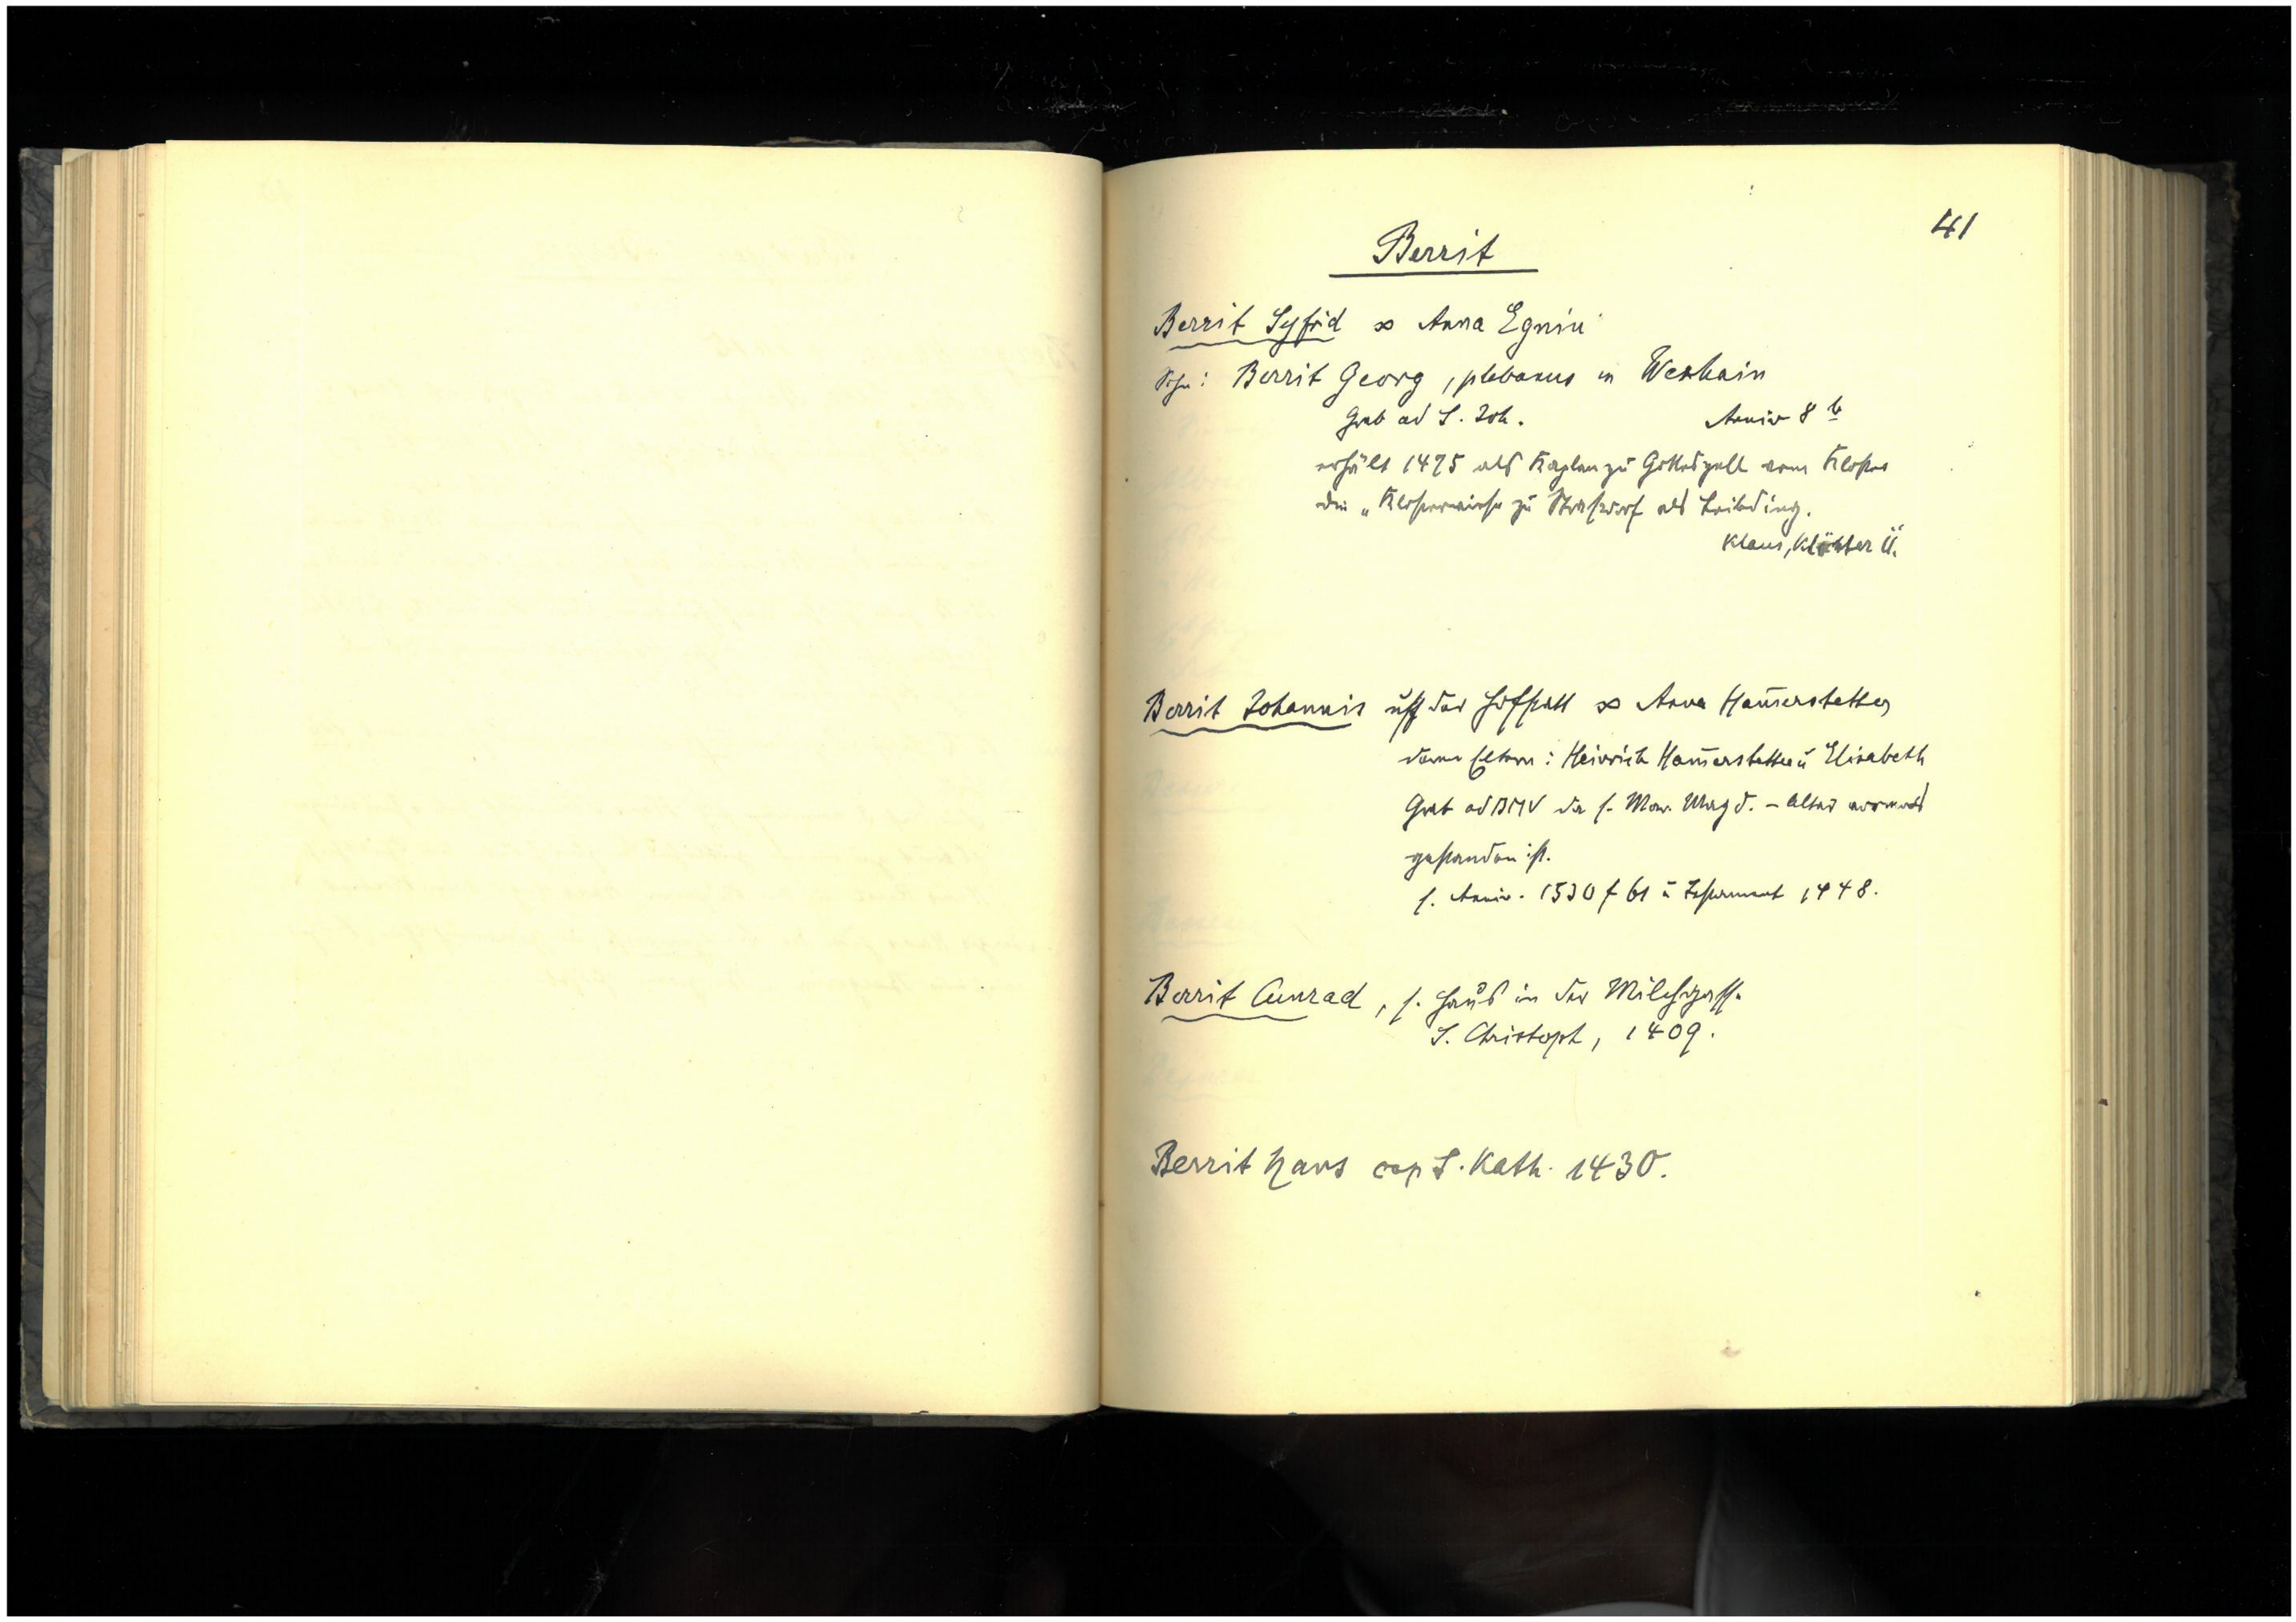 41
Berrit
Berrit Syfrid ∞ Anna Egnin
Sohn: Berrit Georg, plebanus in Weshain
Grab ad S. Joh. Anniv 8 b
erhält 1475 als Kaplan zu Gotteszell vom Kloster
die „Klosterwiese zu Straßdorf als Leibding.
Klaus, Klöster Ü.
Berrit Johannis uff der Hofstatt ∞ Anna Ham̄erstetter
deren Eltern: Heinrich Ham̄erstetter u Elisabeth
Grab ad BMV da s. Mar. Magd. - Altar vormals
gestanden ist.
s. Anniv. 1530 f 61 u Testament 1448.
Berrit Cunrad, s. Haus in der Milchgasse
S. Christoph, 1409.
Berrit Hans cap S. Kath. 1430.